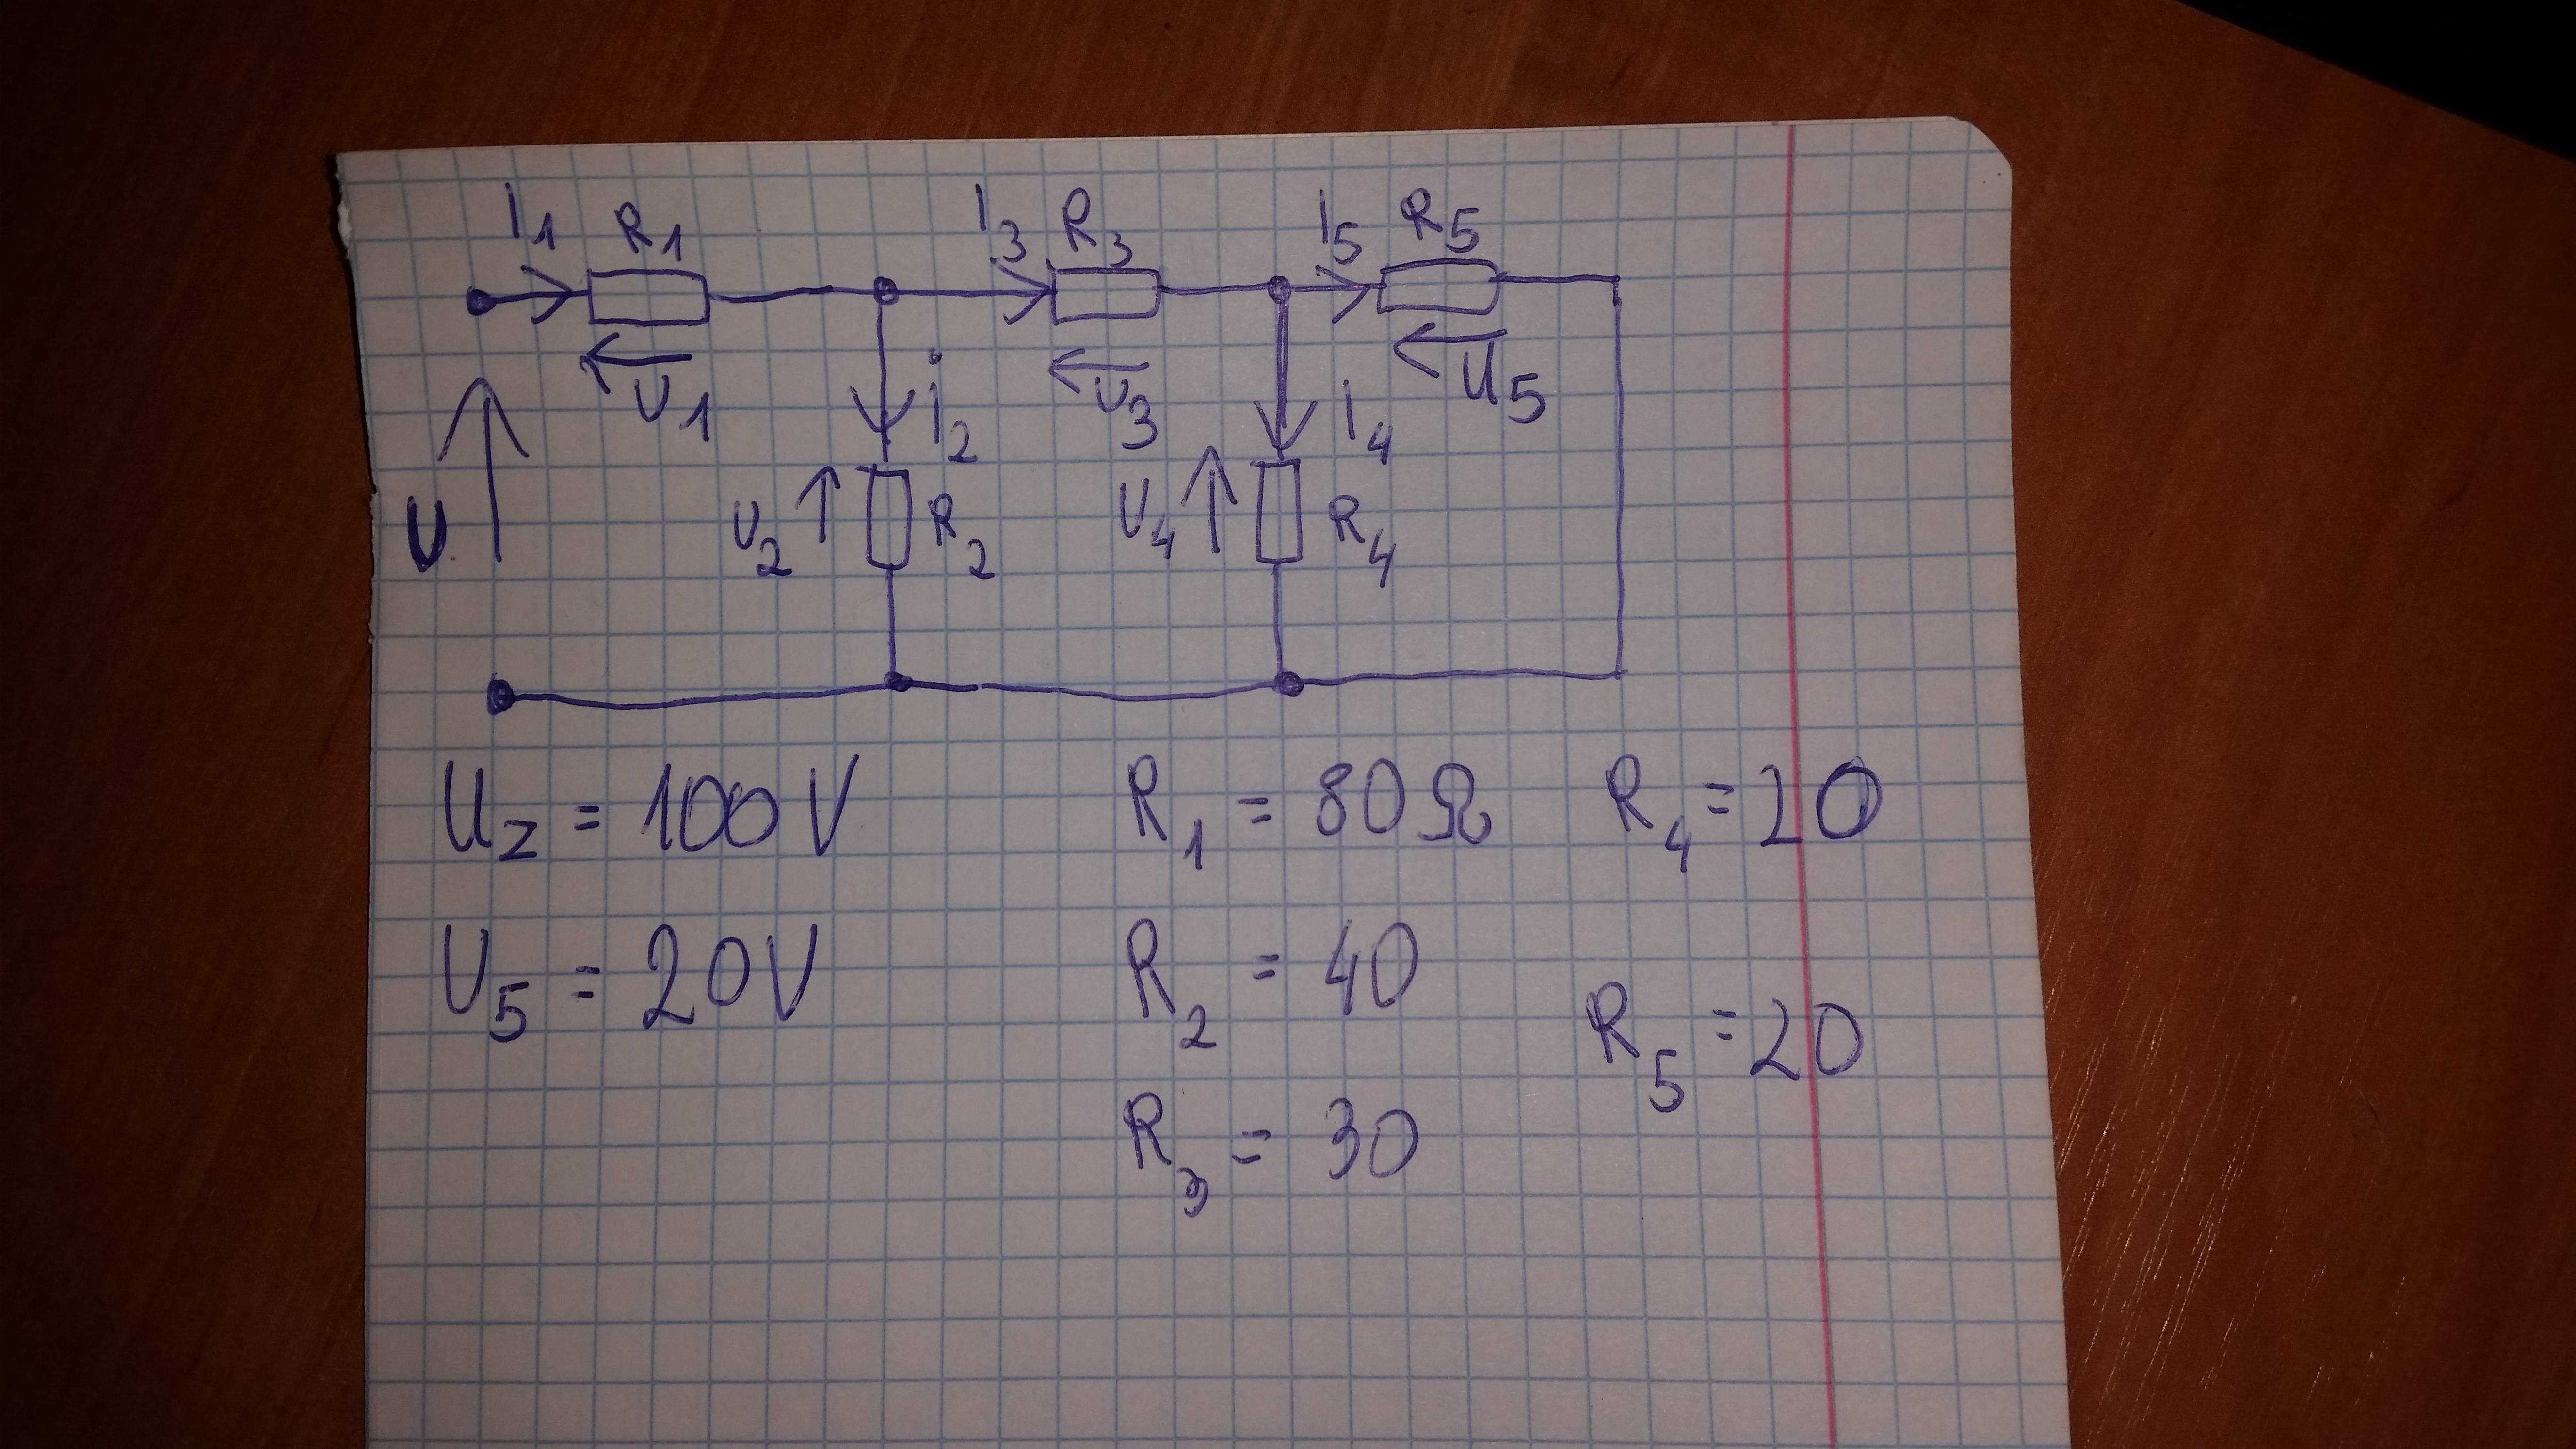 I1 R1 I3 R3 I5 R5
U1 U3 U5
i2 I4
U U2 R2 U4 R4
Uz = 100V R1 = 80Ω R4 = 20
U5 = 20V R2 = 40 R5 = 20
R3 = 30